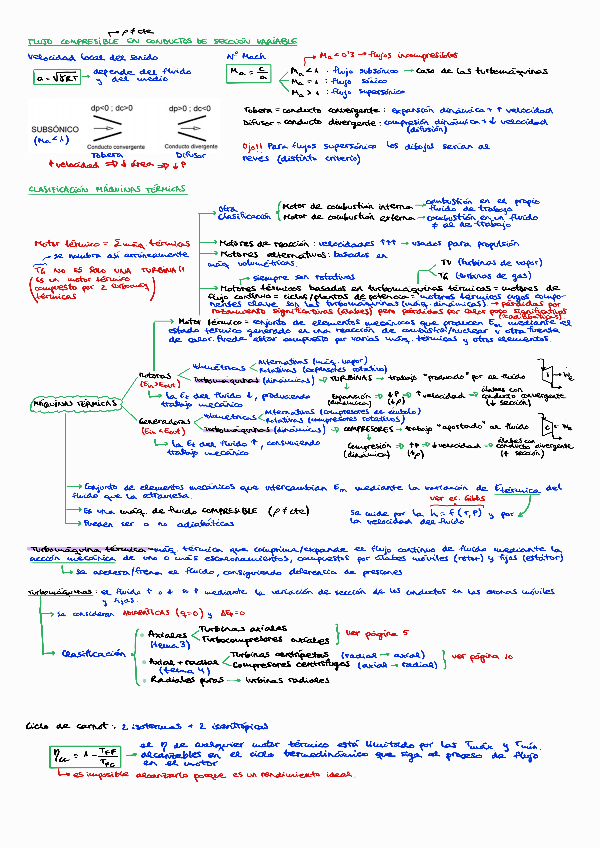 ρ ≠ cte
FLUJO COMPRESIBLE EN CONDUCTOS DE SECCIÓN VARIABLE
Velocidad local del sonido
a = √γRT
depende del fluido
y del medio
Nº Mach
Ma = c/a
Ma < 0'3 → flujos incompresibles
Ma < 1 : flujo subsónico → caso de las turbomáquinas
Ma = 1 : flujo sónico
Ma > 1 : flujo supersónico
dp<0 ; dc>0
dp>0 ; dc<0
SUBSÓNICO
(Ma < 1)
Conducto convergente
Conducto divergente
Tobera
Difusor
↑ velocidad ⇒ ↓ área ⇒ ↓ P
Tobera = conducto convergente : expansión dinámica + ↑ velocidad
Difusor = conducto divergente : compresión dinámica + ↓ velocidad
(difusión)
Ojo!! Para flujos supersónico los dibujos serían al
revés (distinto criterio)
CLASIFICACIÓN MÁQUINAS TÉRMICAS
Otra
clasificación
Motor de combustión interna → combustión en el propio
fluido de trabajo
Motor de combustión externa → combustión en un fluido
≠ al de trabajo
Motor térmico = Σ máq. térmicas
se nombra así erróneamente
TG NO ES SOLO UNA TURBINA!!
Es un motor térmico
compuesto por 2 turbomáq
térmicas
Motores de reacción : velocidades ↑↑↑ → usados para propulsión
Motores alternativos : basados en
máq volumétricas
siempre son rotativas
TV (turbinas de vapor)
TG (turbinas de gas)
Motores térmicos basados en turbomáquinas térmicas = motores de
flujo continuo = ciclos/plantas de potencia = motores térmicos cuyos compo-
nentes clave son las turbomáquinas (máq. dinámicas) → pérdidas por
rozamiento significativas (álabes) pero pérdidas por calor poco significativas
(≈ adiabáticas)
Motor térmico = conjunto de elementos mecánicos que producen Em mediante el
estado térmico generado en una reacción de combustión/nuclear y otra fuente
de calor. Puede estar compuesto por varias máq. térmicas y otros elementos.
MÁQUINAS TÉRMICAS
Motoras
(Ein > Eout)
Volumétricas
Alternativas (máq. vapor)
Rotativas (expansores rotativo)
Turbomáquinas (dinámicas) → TURBINAS → trabajo "producido" por el fluido
la Et del fluido ↓, produciendo
trabajo mecánico
Expansión
(dinámica)
↓P
(↓ρ)
↑ velocidad
álabes con
conducto convergente
(↓ sección)
Generadoras
(Ein < Eout)
Volumétricas
Alternativas (compresores de émbolo)
Rotativas (compresores rotativos)
Turbomáquinas (dinámicas) → COMPRESORES → trabajo "aportado" al fluido
la Et del fluido ↑, consumiendo
trabajo mecánico
Compresión
(dinámica)
↑P
(↑ρ)
↓ velocidad
álabes con
conducto divergente
(↑ sección)
Conjunto de elementos mecánicos que intercambian Em mediante la variación de Etérmica del
fluido que la atraviesa.
ver ec. Gibbs
Es una máq. de fluido COMPRESIBLE (ρ ≠ cte)
se mide por la h = f(T,P) y por
la velocidad del fluido
Pueden ser o no adiabáticas
Turbomáquina térmica = máq. térmica que comprime/expande el flujo continuo de fluido mediante la
acción mecánica de uno o más escalonamientos, compuestos por álabes móviles (rotor) y fijas (estátor)
se acelera/frena el fluido, consiguiendo diferencia de presiones
Turbomáquinas : el fluido ↑ o ↓ su P mediante la variación de sección de los conductos en las coronas móviles
y fijas.
se consideran ADIABÁTICAS (q=0) y
Clasificación
Axiales
(tema 3)
Turbinas axiales
Turbocompresores axiales
ver página 5
Axial + radial
(tema 4)
Turbinas centrípetas (radial → axial)
Compresores centrífugos (axial → radial)
ver página 10
Radiales puras → turbinas radiales
Ciclo de carnot : 2 isotermas + 2 isentrópicas
el η de cualquier motor térmico está limitado por las Tmáx y Tmín.
alcanzables en el ciclo termodinámico que siga el proceso de flujo
en el motor
es imposible alcanzarlo porque es un rendimiento ideal.